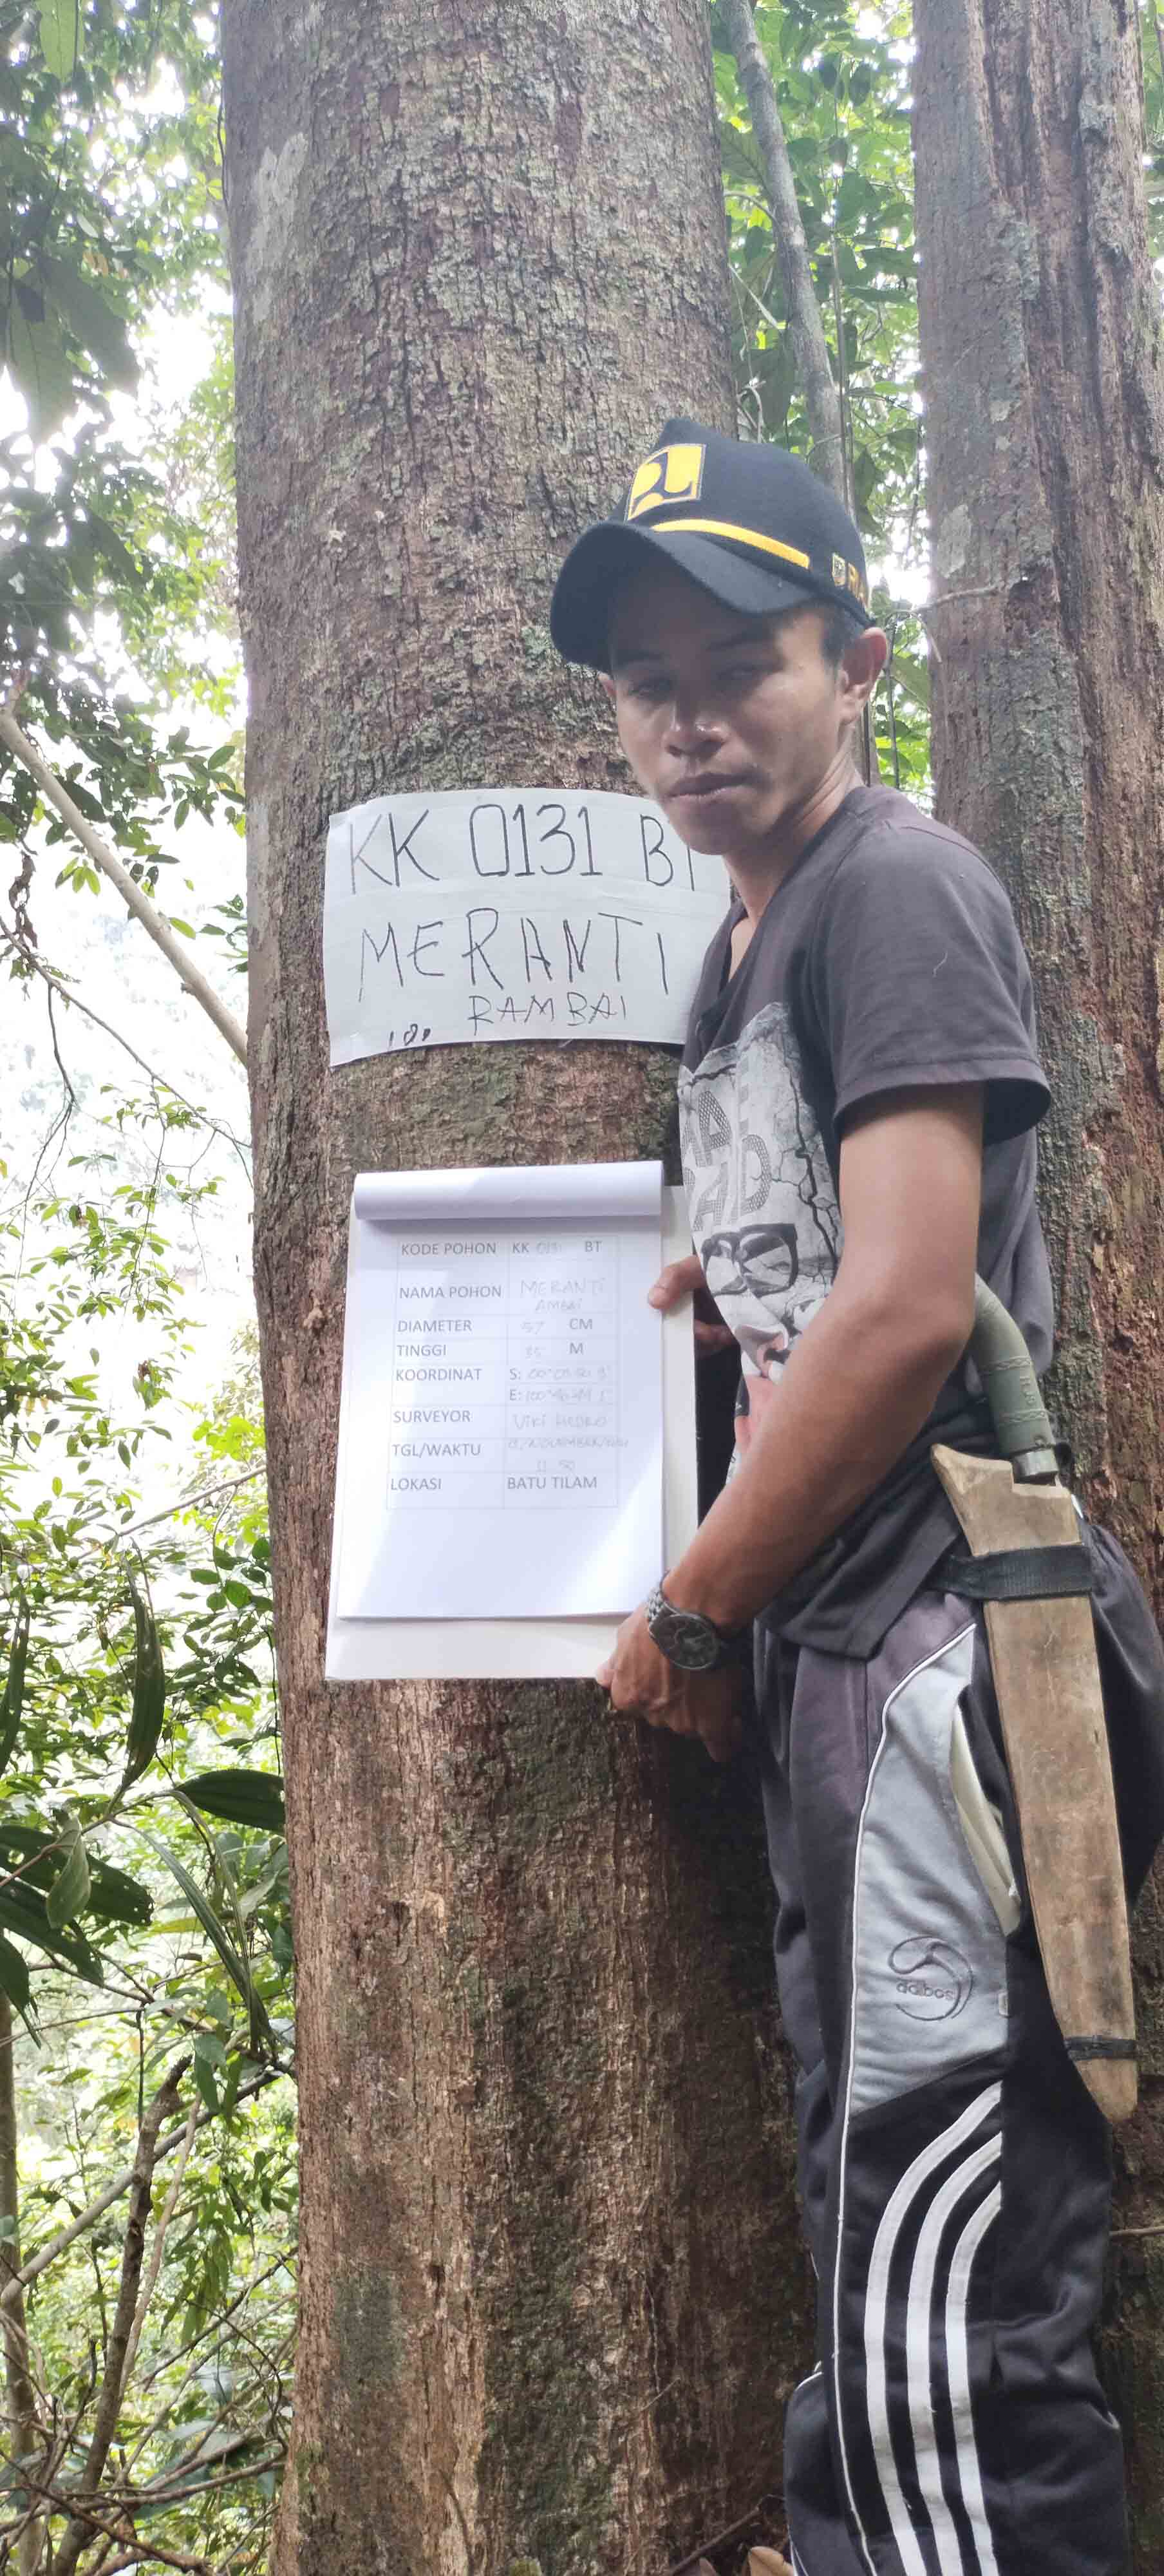 KK 0131 BT
MERANTI
RAMBAI
KODE POHON KK 0131 BT
NAMA POHON MERANTI
AMBAI
DIAMETER 57 CM
TINGGI 35 M
KOORDINAT S:
E:
SURVEYOR VIKI HEDRO
TGL/WAKTU NOVEMBER
11 50
LOKASI BATU TILAM
adibos